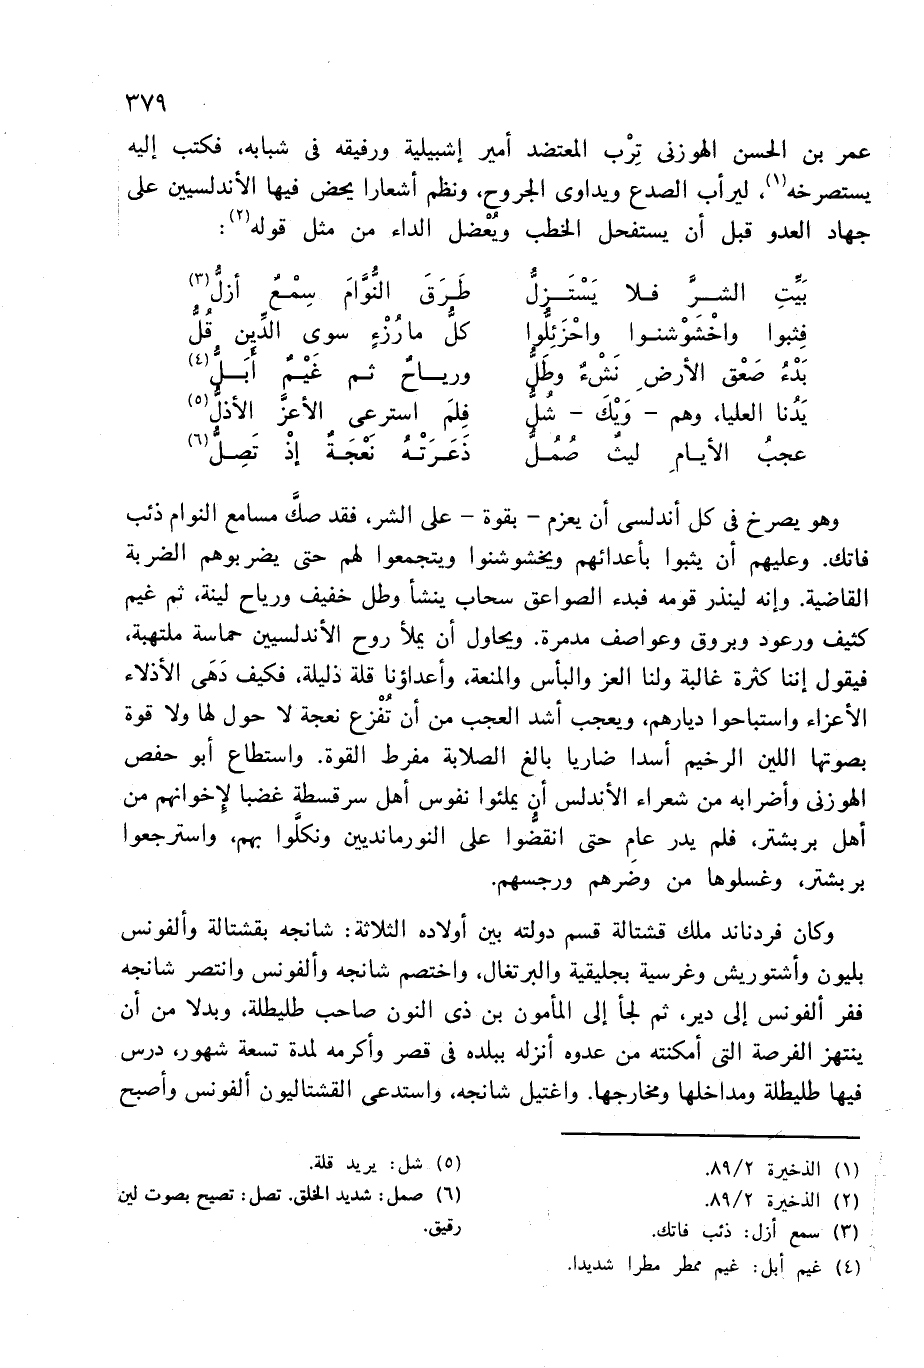 ٣٧٩
عمر بن الحسن الهوزنى تِرْب المعتضد أمير إشبيلية ورفيقه فى شبابه، فكتب إليه
يستصرخه(١)، ليرأب الصدع ويداوى الجروح، ونظم أشعارا يحض فيها الأندلسيين على
جهاد العدو قبل أن يستفحل الخطب ويُعْضل الداء من مثل قوله(٢):
بَيَّتِ الشــرَّ فــلا يَسْتَــزِلُّ طَــرَقَ النُّوَّامَ سِمْــعٌ أزلُّ(٣)
فثبوا واخْشَوْشنــوا واحْزَئِلُّوا كلُّ مارُزْءٍ سوى الدِّينِ قُلُّ
بَدْءُ صَعْق الأرضِ نَشْءٌ وطَلُّ وريــاحٌ ثــم غَيْــمٌ أَبَــلُّ(٤)
يَدُنا العليا، وهم – وَيْكَ – شُلُّ فلِمَ استرعى الأعزَّ الأذلُّ(٥)
عجبُ الأيــامِ ليثٌ صُمُــلُّ ذَعَرَتْــهُ نَعْجَــةٌ إذْ تَصِــلُّ(٦)
وهو يصرخ فى كل أندلسى أن يعزم – بقوة – على الشر، فقد صكَّ مسامع النوام ذئب
فاتك. وعليهم أن يثبوا بأعدائهم ويخشوشنوا ويتجمعوا لهم حتى يضربوهم الضربة
القاضية. وإنه لينذر قومه فبدء الصواعق سحاب ينشأ وطل خفيف ورياح لينة، ثم غيم
كثيف ورعود وبروق وعواصف مدمرة. ويحاول أن يملأ روح الأندلسيين حماسة ملتهبة،
فيقول إننا كثرة غالبة ولنا العز والبأس والمنعة، وأعداؤنا قلة ذليلة، فكيف دَهَى الأذلاء
الأعزاء واستباحوا ديارهم، ويعجب أشد العجب من أن تُفْزع نعجة لا حول لها ولا قوة
بصوتها اللين الرخيم أسدا ضاريا بالغ الصلابة مفرط القوة. واستطاع أبو حفص
الهوزنى وأضرابه من شعراء الأندلس أن يملئوا نفوس أهل سرقسطة غضبا لإخوانهم من
أهل بربشتر، فلم يدر عام حتى انقضُّوا على النورمانديين ونكلَّوا بهم، واسترجعوا
بربشتر، وغسلوها من وضَرهم ورجسهم.
وكان فردناند ملك قشتالة قسم دولته بين أولاده الثلاثة: شانجه بقشتالة وألفونس
بليون وأشتوريش وغرسية بجليقية والبرتغال، واختصم شانجه وألفونس وانتصر شانجه
ففر ألفونس إلى دير، ثم لجأ إلى المأمون بن ذى النون صاحب طليطلة، وبدلا من أن
ينتهز الفرصة التى أمكنته من عدوه أنزله ببلده فى قصر وأكرمه لمدة تسعة شهور، درس
فيها طليطلة ومداخلها ومخارجها. واغتيل شانجه، واستدعى القشتاليون ألفونس وأصبح
(١) الذخيرة ٨٩/٢.
(٢) الذخيرة ٨٩/٢.
(٣) سمع أزل: ذئب فاتك.
(٤) غيم أبل: غيم ممطر مطرا شديدا.
(٥) شل: يريد قلة.
(٦) صمل: شديد الخلق. تصل: تصيح بصوت لين
رقيق.